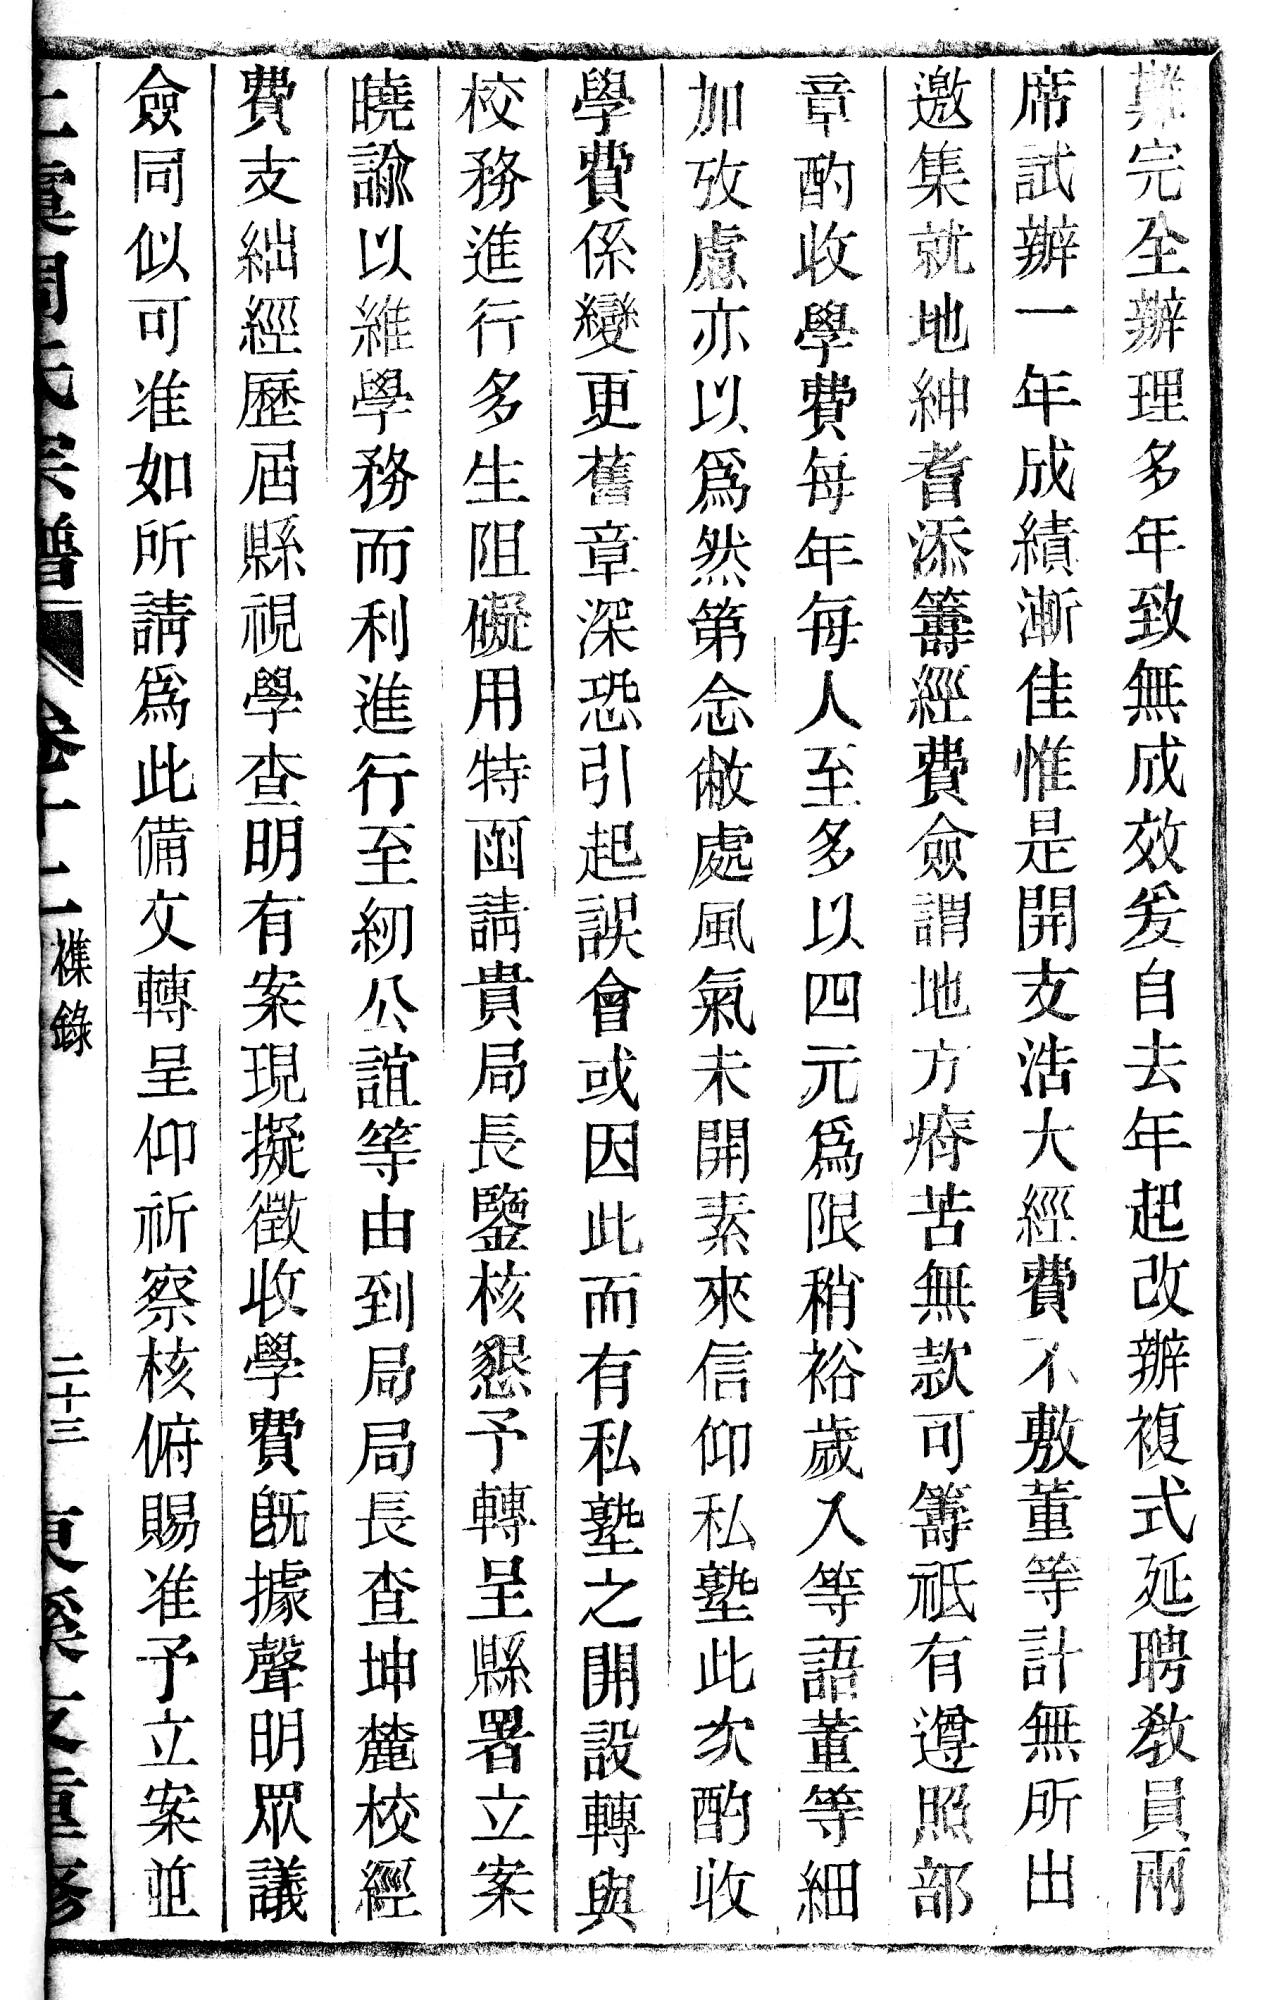 難完全辦理多年致無成效爰自去年起改辦複式延聘教員兩
席試辦一年成績漸佳惟是開支浩大經費不敷董等計無所出
邀集就地紳耆添籌經費僉謂地方瘠苦無款可籌祇有遵照部
章酌收學費每年每人至多以四元爲限稍裕歲入等語董等細
加攷慮亦以爲然第念敝處風氣未開素來信仰私塾此次酌收
學費係變更舊章深恐引起誤會或因此而有私塾之開設轉與
校務進行多生阻礙用特函請貴局長鑒核懇予轉呈縣署立案
曉諭以維學務而利進行至紉公誼等由到局局長查坤麓校經
費支絀經歷屆縣視學查明有案現擬徵收學費旣據聲明眾議
僉同似可准如所請爲此備文轉呈仰祈察核俯賜准予立案並
上虞周氏宗譜 卷十二 襍錄 二十三 東溪支重修